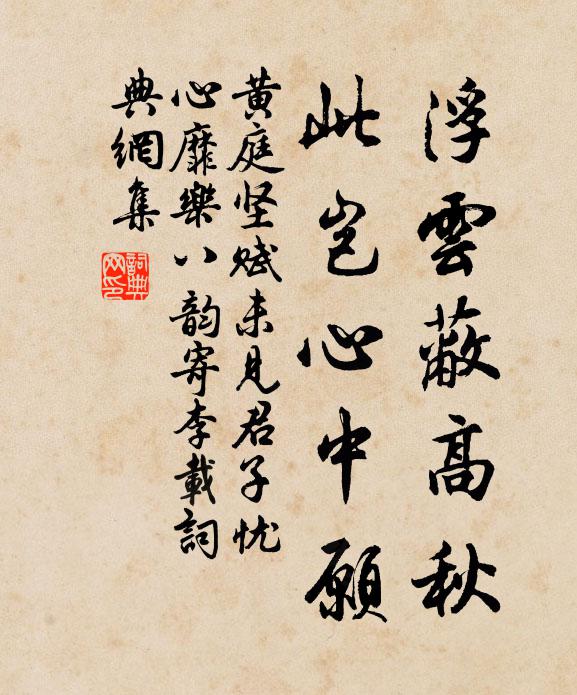 浮雲蔽高秋
此豈心中願
黄庭坚赋未見君子忧
心靡樂八韵寄李載詞
典網集
詞典網印